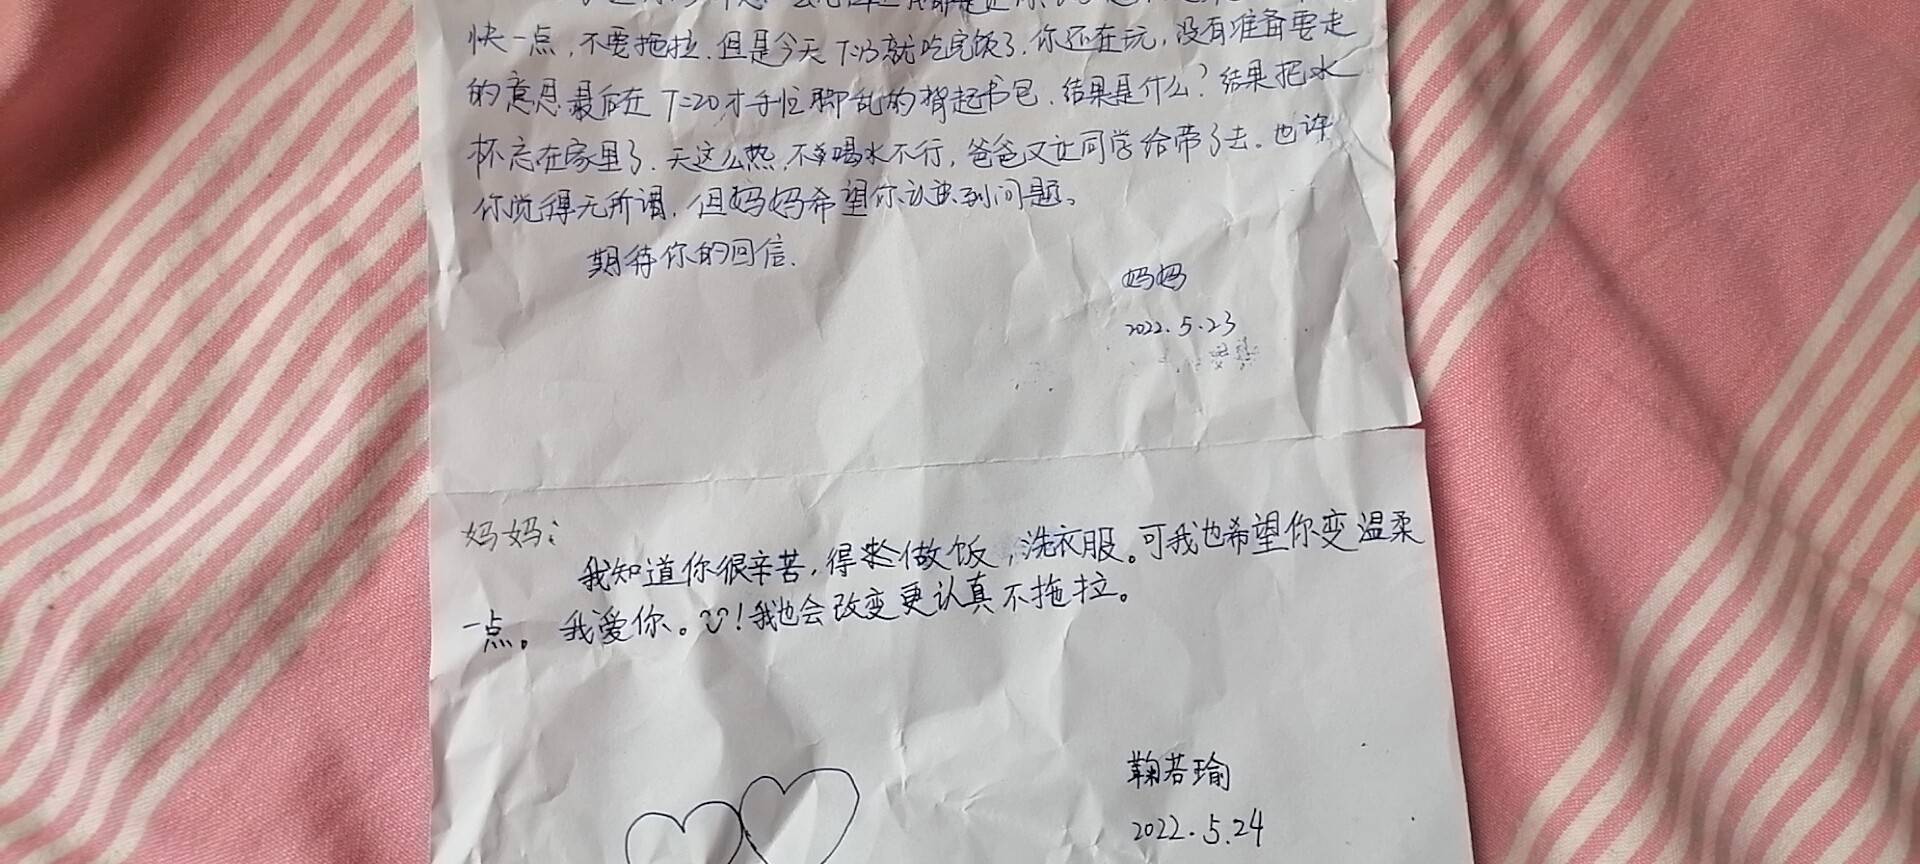 快一点，不要拖拉.但是今天 1:13就吃完饭了.你还在玩，没有准备要走
的意思.最后在 1:20才手忙脚乱的背起书包.结果是什么？结果把水
杯忘在家里了.天这么热，不喝水不行，爸爸又让同学给带了去。也许
你觉得无所谓，但妈妈希望你认识到问题。
期待你的回信.
妈妈
2022.5.23
妈妈：
我知道你很辛苦，得做饭，洗衣服。可我也希望你变温柔
一点。我爱你。！我也会改变更认真不拖拉。
鞠若瑜
2022.5.24